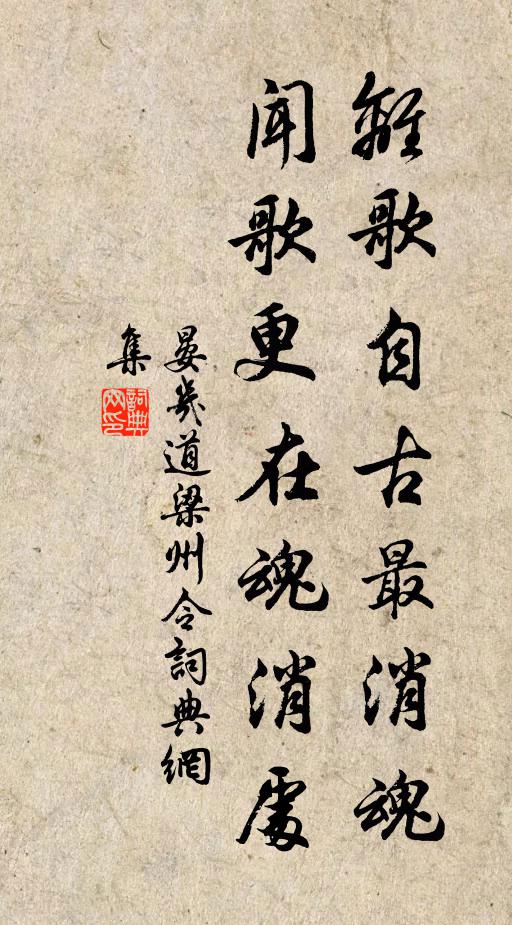 離歌自古最消魂
聞歌更在魂消處
晏幾道梁州令詞典網
集
詞典
网印